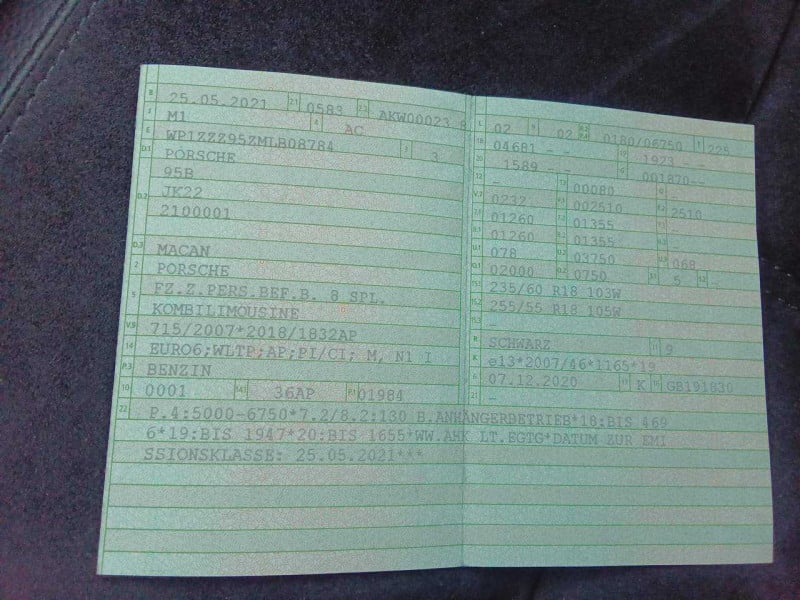 B 25.05.2021 2.1 0583 2.2 AKW00023 8
J M1 4 AC
E WP1ZZZ95ZMLB08784 3 3
D.1 PORSCHE
95B
D.2 JK22
2100001
D.3 MACAN
2 PORSCHE
5 FZ.Z.PERS.BEF.B. 8 SPL.
KOMBILIMOUSINE
V.9 715/2007*2018/1832AP
14 EURO6;WLTP;AP;PI/CI; M, N1 I
P.3 BENZIN
10 0001 14.1 36AP P.1 01984
22 P.4:5000-6750*7.2/8.2:130 B.ANHÄNGERBETRIEB*18:BIS 469
6*19:BIS 1947*20:BIS 1655*WW.AHK LT.EGTG*DATUM ZUR EMI
SSIONSKLASSE: 25.05.2021***
L 02 9 02 P.2 P.4 0180/06750 T 225
18 04681 - - 19 1923 - -
20 1589 - - G 001870--
12 - 13 00080 Q -
V.7 0232 F.1 002510 F.2 2510
7.1 01260 7.2 01355 7.3 -
8.1 01260 8.2 01355 8.3 -
U.1 078 U.2 03750 U.3 068
O.1 02000 O.2 0750 S.1 5 S.2 -
15.1 235/60 R18 103W
15.2 255/55 R18 105W
15.3 -
R SCHWARZ 11 9
K e13*2007/46*1165*19
6 07.12.2020 17 K 16 GB191830
21 -